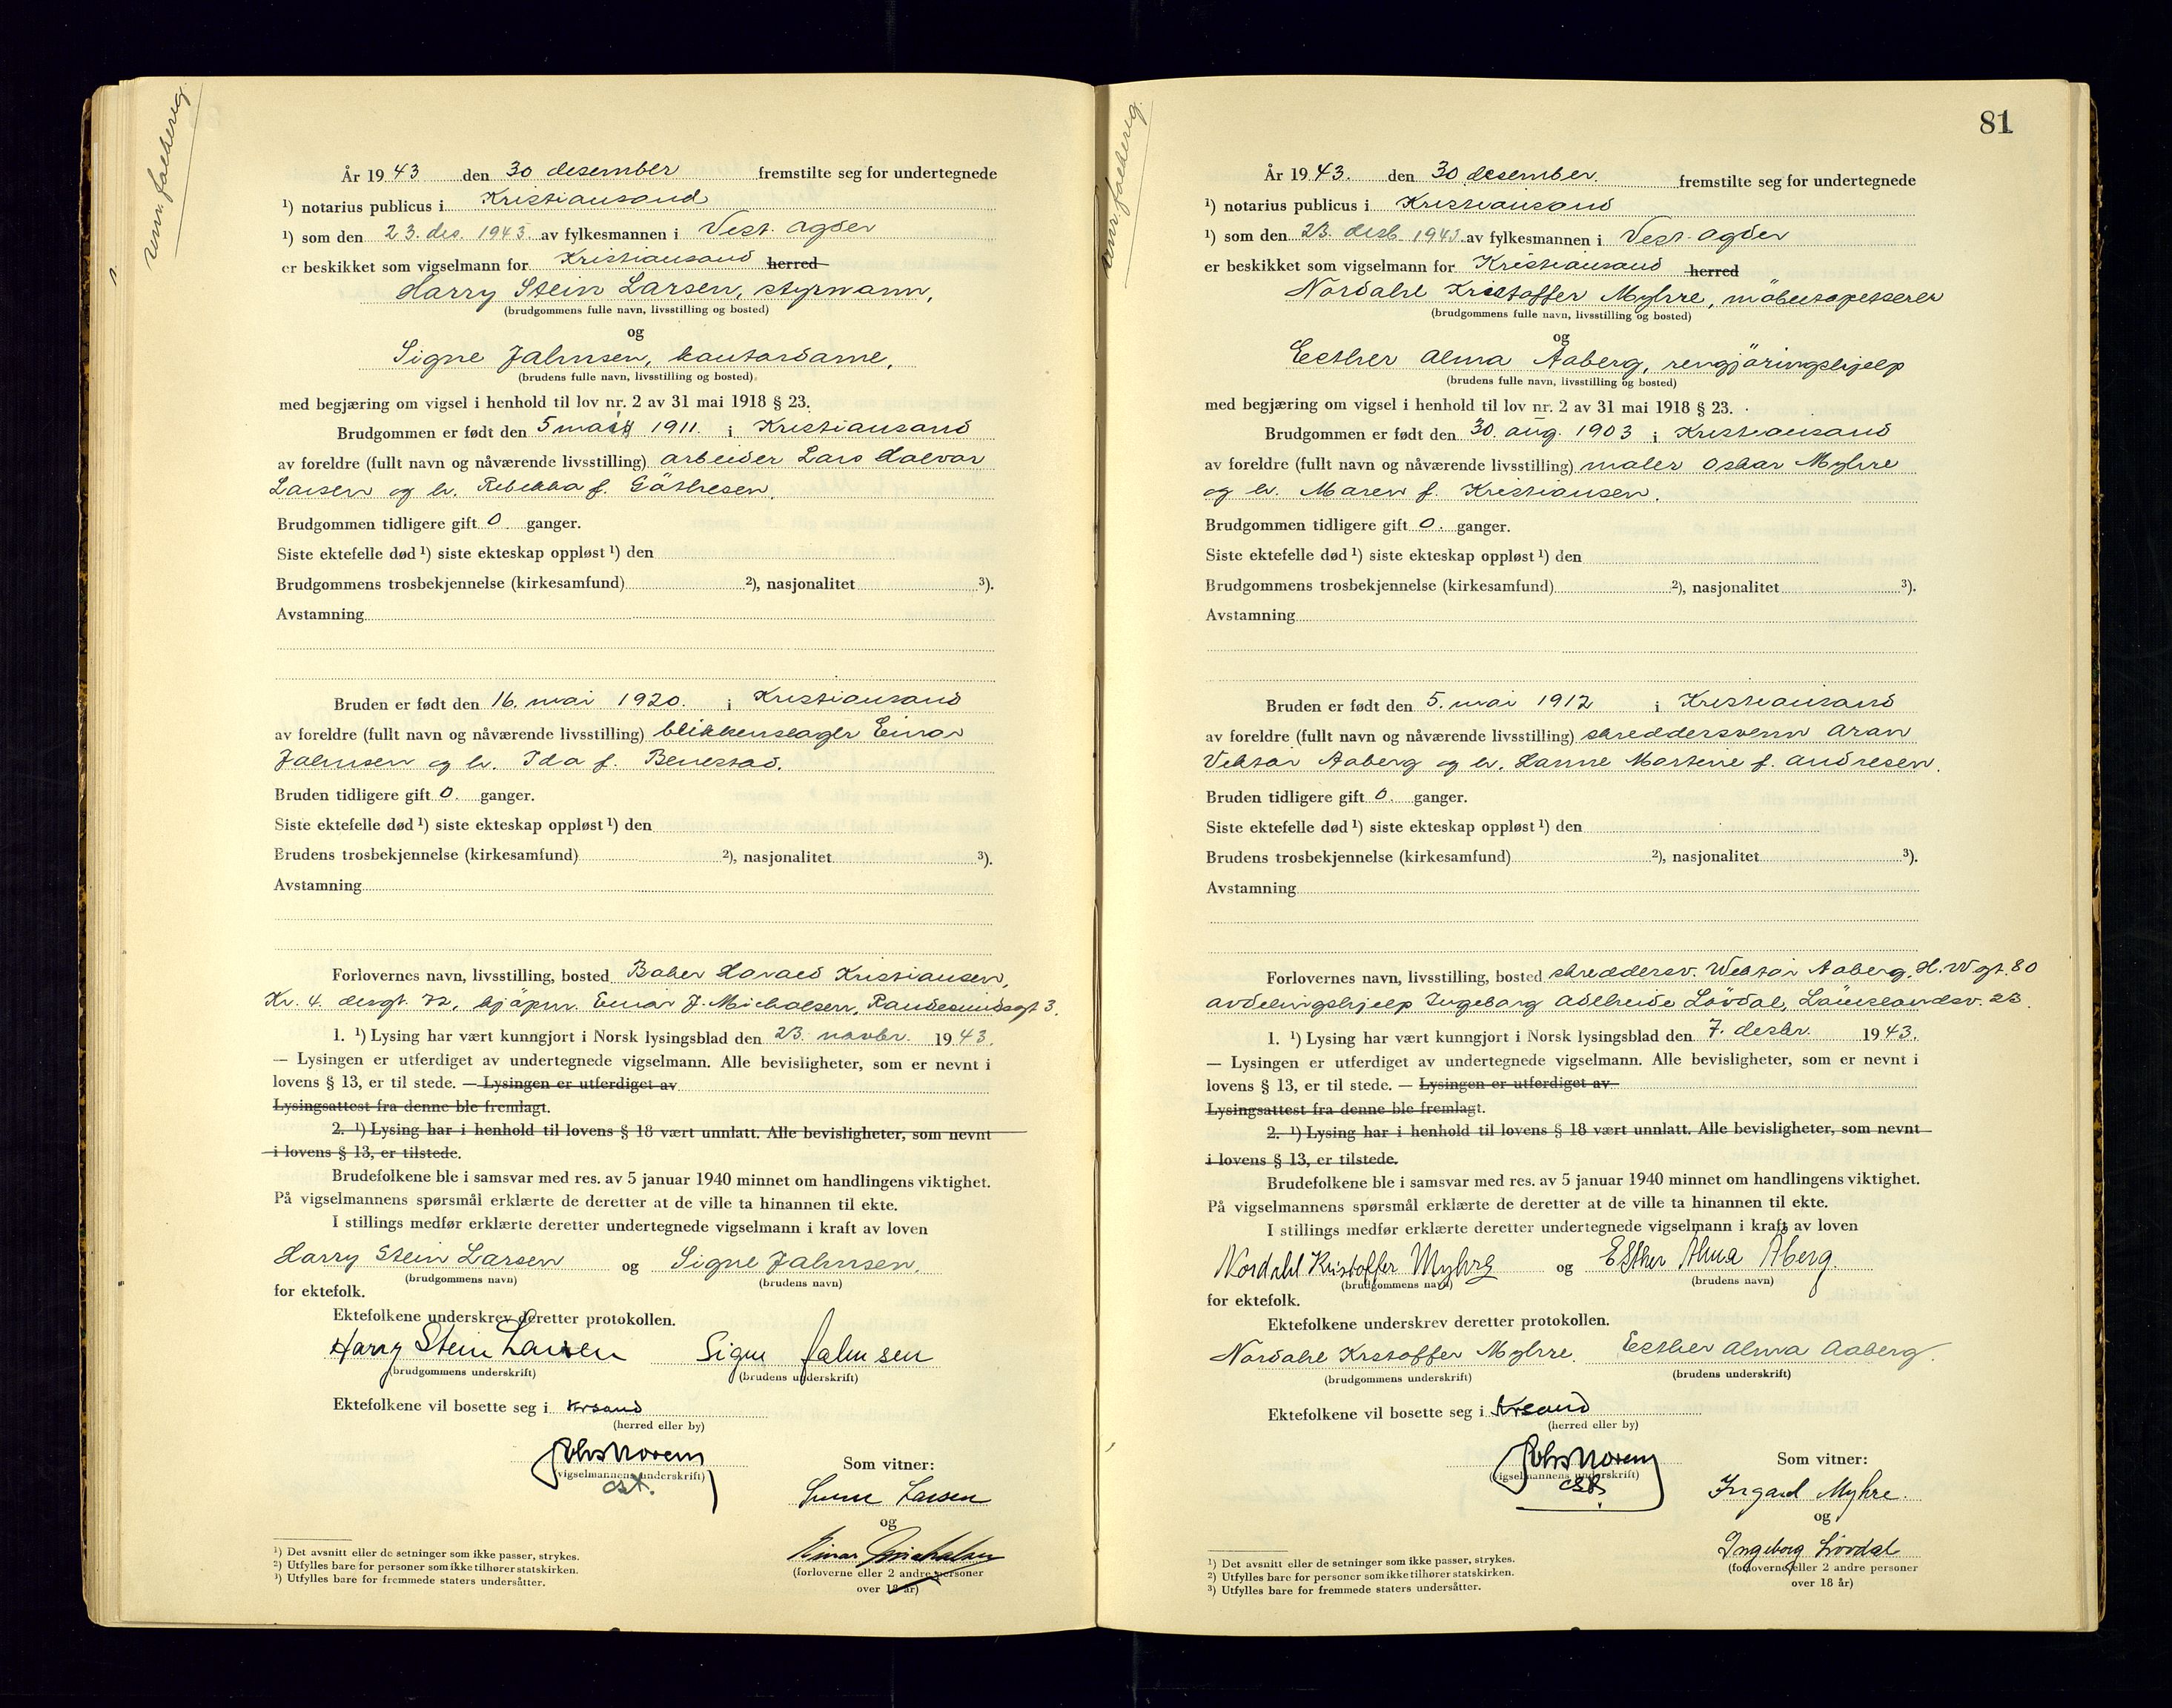 År 1943 den 30 desember fremstilte seg for undertegnede
¹) notarius publicus i Kristiansand
¹) som den 23. des. 1943. av fylkesmannen i Vest. Agder
er beskikket som vigselmann for Kristiansand herred
Harry Stein Larsen, styrmann,
(brudgommens fulle navn, livsstilling og bosted)
og
Signe Jahnsen, kontordame,
(brudens fulle navn, livsstilling og bosted)
med begjæring om vigsel i henhold til lov nr. 2 av 31 mai 1918 § 23.
Brudgommen er født den 5 1911. i Kristiansand
av foreldre (fullt navn og nåværende livsstilling) arbeider Lars Halvor
Larsen og h. Rebekka f. Göthesen.
Brudgommen tidligere gift 0 ganger.
Siste ektefelle død ¹) siste ekteskap oppløst ¹) den
Brudgommens trosbekjennelse (kirkesamfund) ²), nasjonalitet ³).
Avstamning
Bruden er født den 16. mai 1920. i Kristiansand
av foreldre (fullt navn og nåværende livsstilling) blikkenslager Einar
Jahnsen og h. Ida f. Benestad.
Bruden tidligere gift 0. ganger.
Siste ektefelle død ¹) siste ekteskap oppløst ¹) den
Brudens trosbekjennelse (kirkesamfund) ²), nasjonalitet ³).
Avstamning
Forlovernes navn, livsstilling, bosted Baker Harald Kristiansen,
Kr. 4. desgt. 72, kjöpm. Einar J. Michalsen, Randesundsgt 3.
1. ¹) Lysing har vært kunngjort i Norsk lysingsblad den 23. novbr. 1943.
— Lysingen er utferdiget av undertegnede vigselmann. Alle bevisligheter, som er nevnt i
lovens § 13, er til stede. — Lysingen er utferdiget av
Lysingsattest fra denne ble fremlagt.
2. ¹) Lysing har i henhold til lovens § 18 vært unnlatt. Alle bevisligheter, som nevnt
i lovens § 13, er tilstede.
Brudefolkene ble i samsvar med res. av 5 januar 1940 minnet om handlingens viktighet.
På vigselmannens spørsmål erklærte de deretter at de ville ta hinannen til ekte.
I stillings medfør erklærte deretter undertegnede vigselmann i kraft av loven
Harry Stein Larsen og Signe Jahnsen.
(brudgommens navn) (brudens navn)
for ektefolk.
Ektefolkene underskrev deretter protokollen.
Harry Stein Larsen Signe Jahnsen
(brudgommens underskrift) (brudens underskrift)
Ektefolkene vil bosette seg i Krsand
(herred eller by)
Johs Norem
(vigselmannens underskrift)
cst.
Som vitner:
Larsen
og
Einar Michalsen
(forloverne eller 2 andre personer
over 18 år)
¹) Det avsnitt eller de setninger som ikke passer, strykes.
²) Utfylles bare for personer som ikke tilhører statskirken.
³) Utfylles bare for fremmede staters undersåtter.
81
År 1943. den 30 desember. fremstilte seg for undertegnede
¹) notarius publicus i Kristiansand
¹) som den 23. desb. 1943. av fylkesmannen i Vest-Agder
er beskikket som vigselmann for Kristiansand herred
Nordahl Kristoffer Myhre, möbeltapetserer
(brudgommens fulle navn, livsstilling og bosted)
og
Esther Alma Aaberg, rengjöringshjelp
(brudens fulle navn, livsstilling og bosted)
med begjæring om vigsel i henhold til lov nr. 2 av 31 mai 1918 § 23.
Brudgommen er født den 30. aug. 1903 i Kristiansand
av foreldre (fullt navn og nåværende livsstilling) maler Oskar Myhre
og h. Maren f. Kristiansen.
Brudgommen tidligere gift 0. ganger.
Siste ektefelle død ¹) siste ekteskap oppløst ¹) den
Brudgommens trosbekjennelse (kirkesamfund) ²), nasjonalitet ³).
Avstamning
Bruden er født den 5. mai 1912 i Kristiansand
av foreldre (fullt navn og nåværende livsstilling) skreddersvenn Aran
Viktor Aaberg og h. Hanne Martine f. Andresen.
Bruden tidligere gift 0. ganger.
Siste ektefelle død ¹) siste ekteskap oppløst ¹) den
Brudens trosbekjennelse (kirkesamfund) ²), nasjonalitet ³).
Avstamning
Forlovernes navn, livsstilling, bosted skreddersv. Viktor Aaberg, H. W gt. 80
avdelingshjelp Ingeborg Adelheide Lövdal, 23.
1. ¹) Lysing har vært kunngjort i Norsk lysingsblad den 7. desbr. 1943.
— Lysingen er utferdiget av undertegnede vigselmann. Alle bevisligheter, som er nevnt i
lovens § 13, er til stede. — Lysingen er utferdiget av
Lysingsattest fra denne ble fremlagt.
2. ¹) Lysing har i henhold til lovens § 18 vært unnlatt. Alle bevisligheter, som nevnt
i lovens § 13, er tilstede.
Brudefolkene ble i samsvar med res. av 5 januar 1940 minnet om handlingens viktighet.
På vigselmannens spørsmål erklærte de deretter at de ville ta hinannen til ekte.
I stillings medfør erklærte deretter undertegnede vigselmann i kraft av loven
Nordahl Kristoffer Myhre og Esther Alma Åberg.
(brudgommens navn) (brudens navn)
for ektefolk.
Ektefolkene underskrev deretter protokollen.
Nordahl Krstoffer Myhre. Esther Alma Aaberg.
(brudgommens underskrift) (brudens underskrift)
Ektefolkene vil bosette seg i Krsand
(herred eller by)
Johs Norem
(vigselmannens underskrift)
cst.
Som vitner:
Ingard Myhre.
og
Ingeborg Lövdal
(forloverne eller 2 andre personer
over 18 år)
¹) Det avsnitt eller de setninger som ikke passer, strykes.
²) Utfylles bare for personer som ikke tilhører statskirken.
³) Utfylles bare for fremmede staters undersåtter.